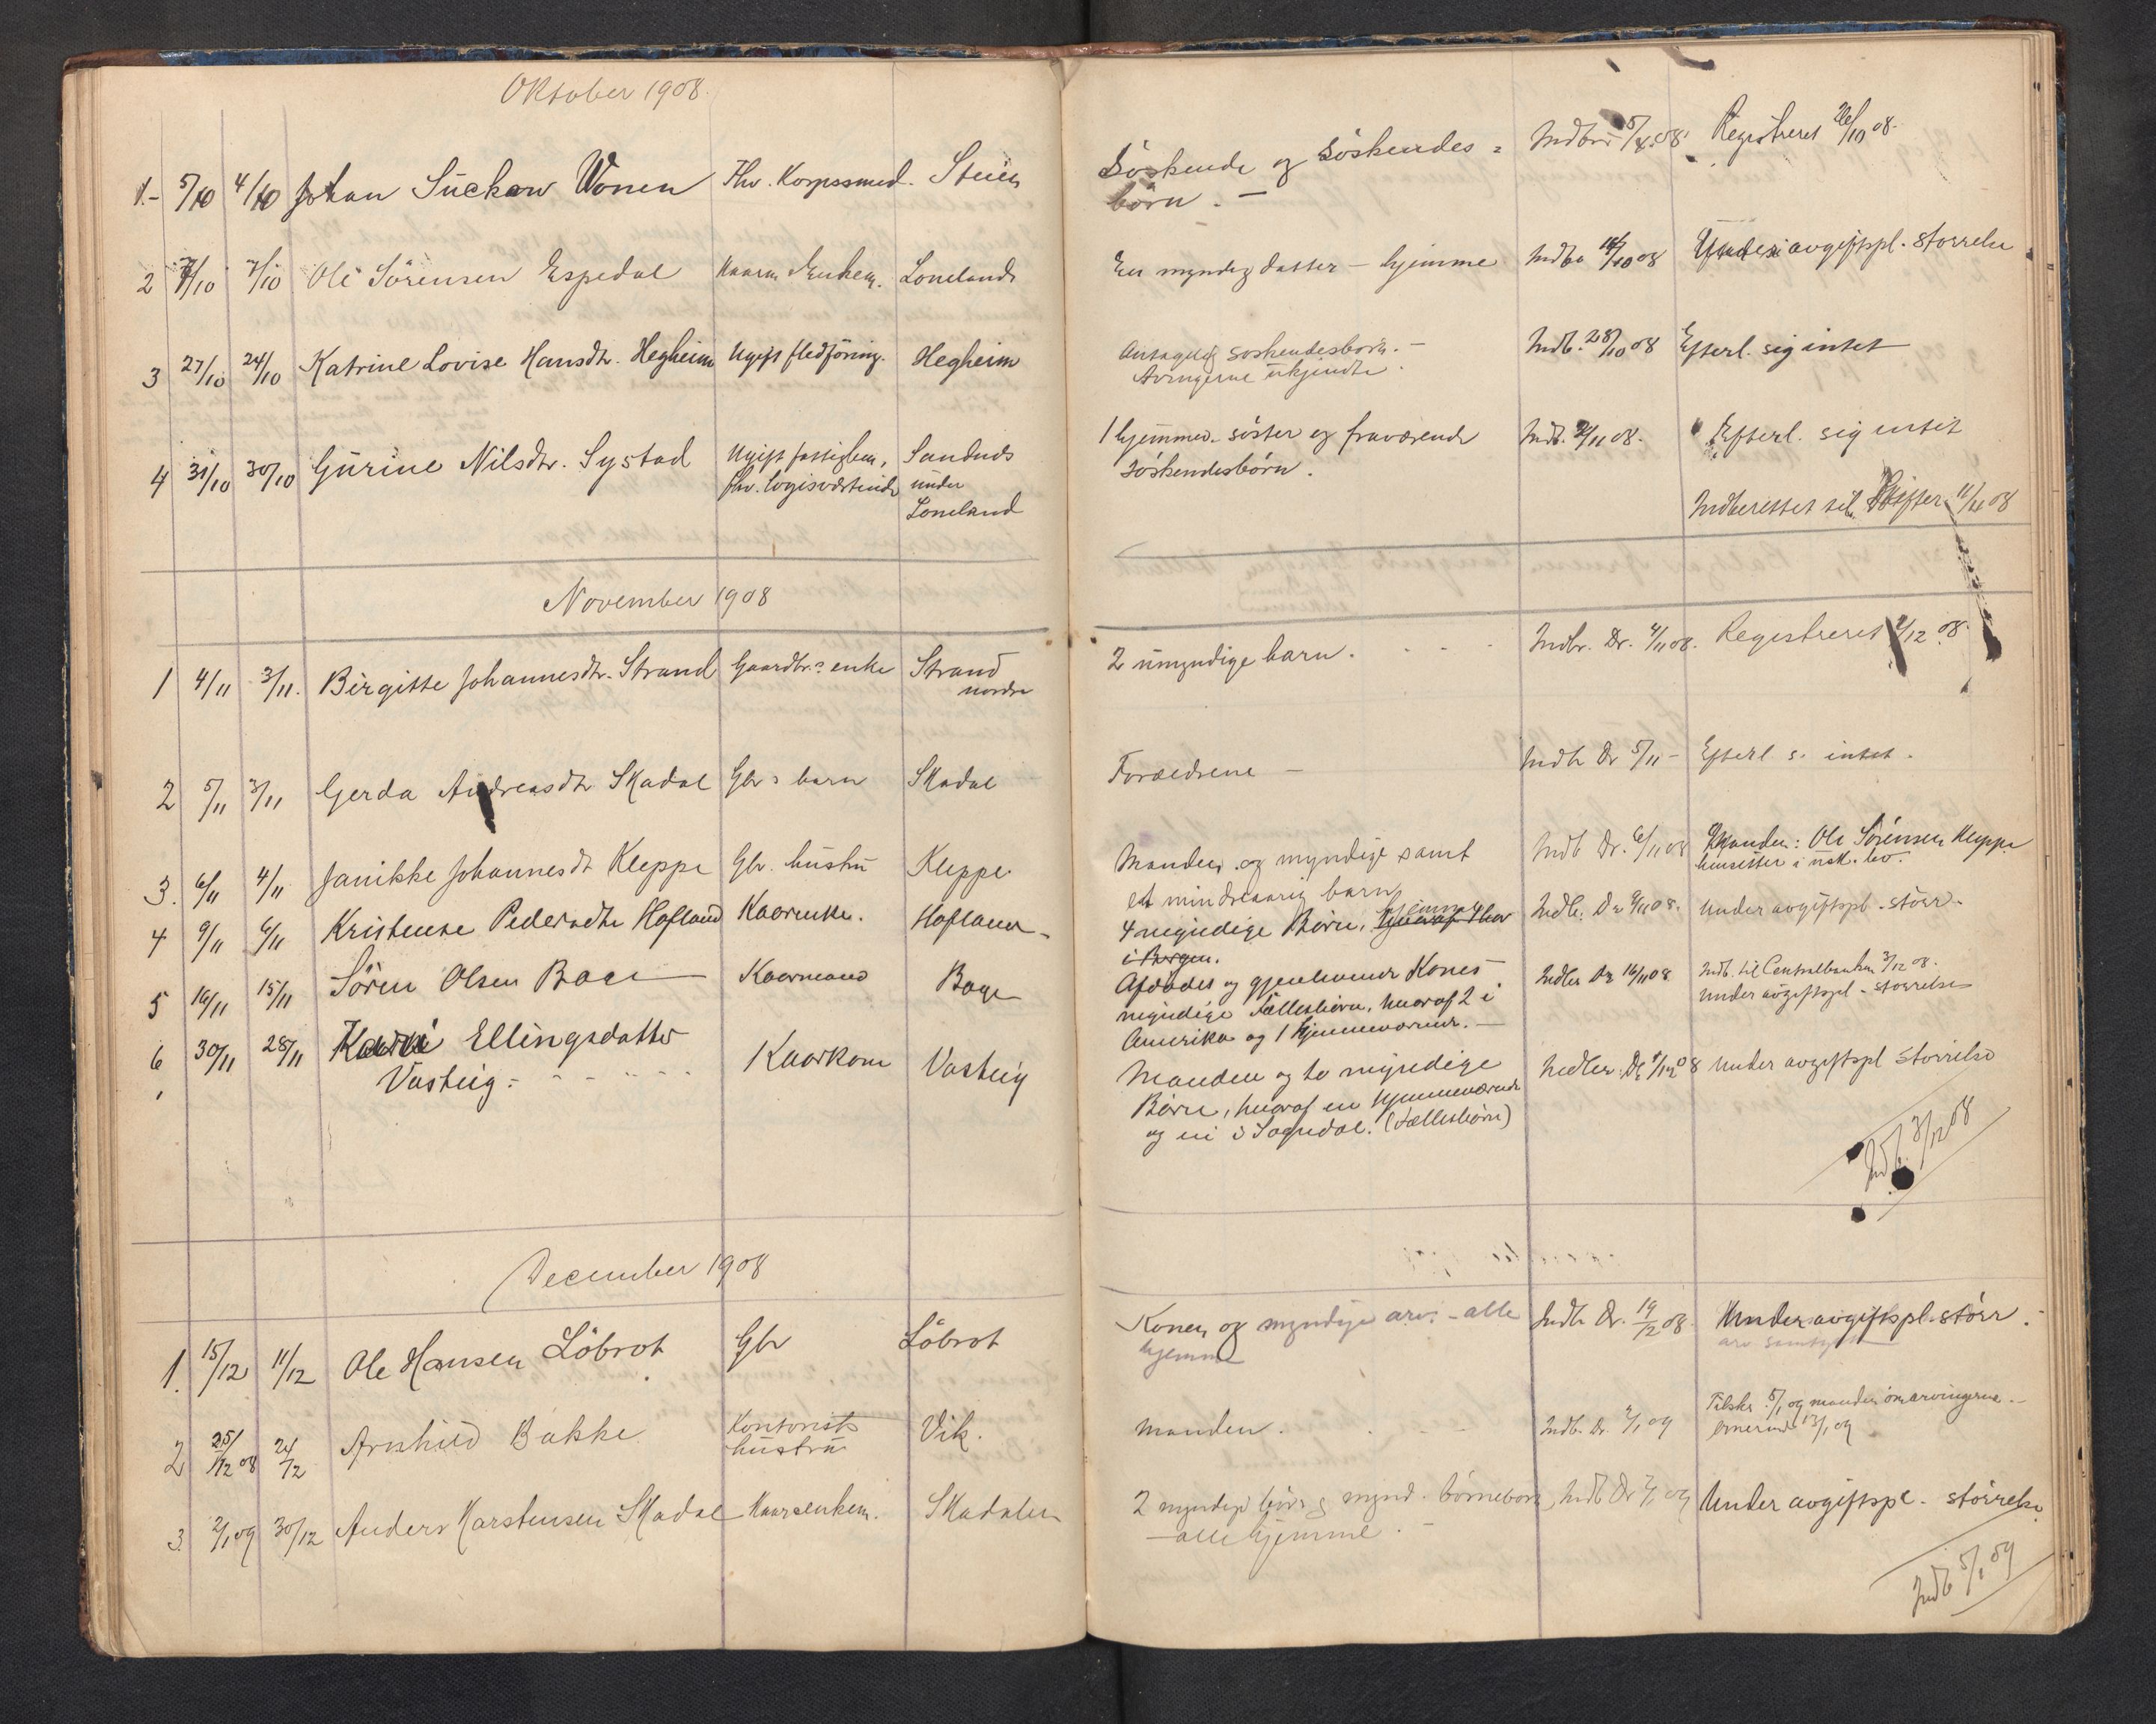 Oktober 1908.
1.- 5/10 4/10 Johan Suckow Wonen Fhv. Korpssmed. Steien
2 7/10 7/10 Ole Sörensen Espedal Kaarm. Enkem. Lonelands
3 27/10 24/10 Katrine Lovise Hansdtr. Hegheim Ugift fledföring. Hegheim
4 31/10 30/10 Gurine Nilsdtr. Systad Ugift fattiglem, Sanduds
fhv. logisvertinde under
Loneland
November 1908
1 4/11 3/11. Birgitte Johannesdtr. Strand Gaardbr.s enke Strand
nordre
2 5/11 3/11 Gerda Andreasdtr Skadal Gbr s barn Skadal
3. 6/11 4/11 Janikke Johannesdt Kleppe Gbr. hustru Kleppe
4 9/11 6/11 Kristense Pedersdtr Hofland Kaarenke. Hofland
5 16/11 15/11 Sören Olsen Boge Kaarmand Boge
6 30/11 28/11 Kari Ellingsdatter
Vasteig Kaarkone Vasteig
December 1908
1. 15/12 11/12 Ole Hansen Löbrot Gbr Löbrot
2 25/12 08 24/12 Arnhild Bakke Kontorists Vik.
hustru
3. 2/1 09 30/12 Anders Karstensen Skadal Kaarenkem. Skadalen
Söskende og Söskendes = Indber 5/ 08. Registreret 26/10 08.
börn. -
En myndig datter - hjemme Indb. 10 08 Under avgiftspl. störrelse
Antagelig söskendesbörn. - Indb. 28/10 08 Efterl. sig intet
Arvingerne ukjendte.
1 hjemmev. söster og fraværende Indb. 2/11 08. Efterl. sig intet
söskendesbörn.
Indberettet til Skifter. 08
2 umyndige barn. Indbr. Dr. 4/11 08. Registreret 2/12 08.
Forældrene - Indb Dr 5/11 - Efterl s. intet.
Manden og myndige samt Indb Dr. 6/11 08 Manden: Ole Sörensen Kleppe
et mindreaarig barn hensitter i usk. bo.
4 myndige Börn, hjemme Indb. Dr 9/11 08. Under avgiftspl. störr.
i Bergen.
Afdödes og gjenlevende Kones Indb Dr 16/11 08 Indb. til Centralbanken 3/12 08.
myndige Fællesbörn, hvoraf 2 i Under avgiftspl. störrelse
Amerika og 1 hjemmeværende. -
Manden og to myndige Indb. Dr 1/12 08 Under avgiftspl störrelse
Börn, hvoraf en hjemmeværende
og en i Sogndal. (Fællesbörn)
Indb. 3/12 08
Konen og myndige arv. - alle Indb Dr. 19/12 08. Under avgiftspl. störr.
hjemme arv
Manden. Indb. Dr. 2/1 09 Tilskr. 5/1 09 manden om arvingerne. -
13/1 09
2 myndige börn og mynd. börnebörn, Indb Dr 2/1 09 Under avgiftspl. störrelse
- alle hjemme. -
Indb 5/1 09